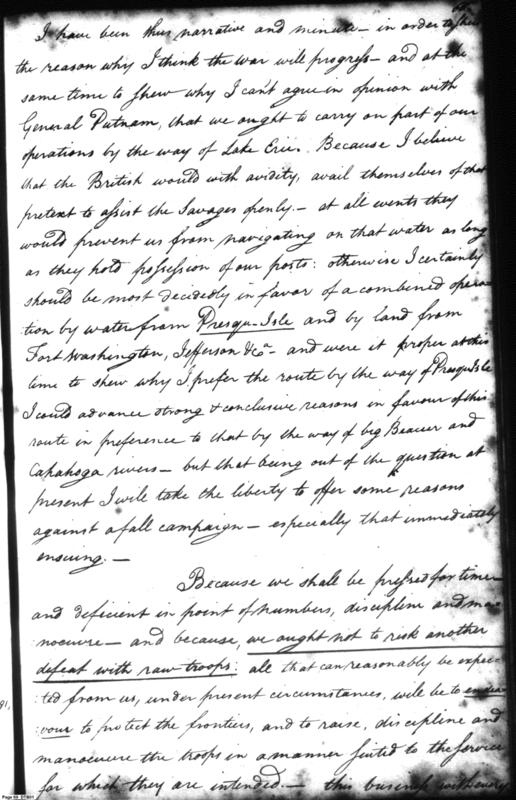 I have been thus narrative and minute — in order to shew
the reason why I think the war will progress — and at the
same time to shew why I can't agree in opinion with
General Putnam, that we ought to carry on part of our
operations by the way of Lake Erie. Because I believe
that the British would with avidity, avail themselves of that
pretext to assist the Savages openly — at all events they
would prevent us from navigating on that water as long
as they hold possession of our posts: otherwise I certainly
should be most decidedly in favor of a combined opera-
tion by water from Presqu-Isle and by land from
Fort Washington, Jefferson &ca — and were it proper at this
time to shew why I prefer the route by the way of Presqu Isle
I could advance strong & conclusive reasons in favour of this
route in preference to that by the way of big Beaver and
Cayahoga rivers — but that being out of the question at
present I will take the liberty to offer some reasons
against a fall campaign — especially that immediately
ensuing. —
Because we shall be pressed for time —
and deficient in point of numbers, discipline and ma-
noeuvre — and because, we ought not to risk another
defeat with raw troops: all that can reasonably be expec-
ted from us, under present circumstances, will be to endea-
vour to protect the frontiers, and to raise, discipline and
manoeuvre the troops in a manner suited to the service
for which they are intended — this business with every
91,
Page 69